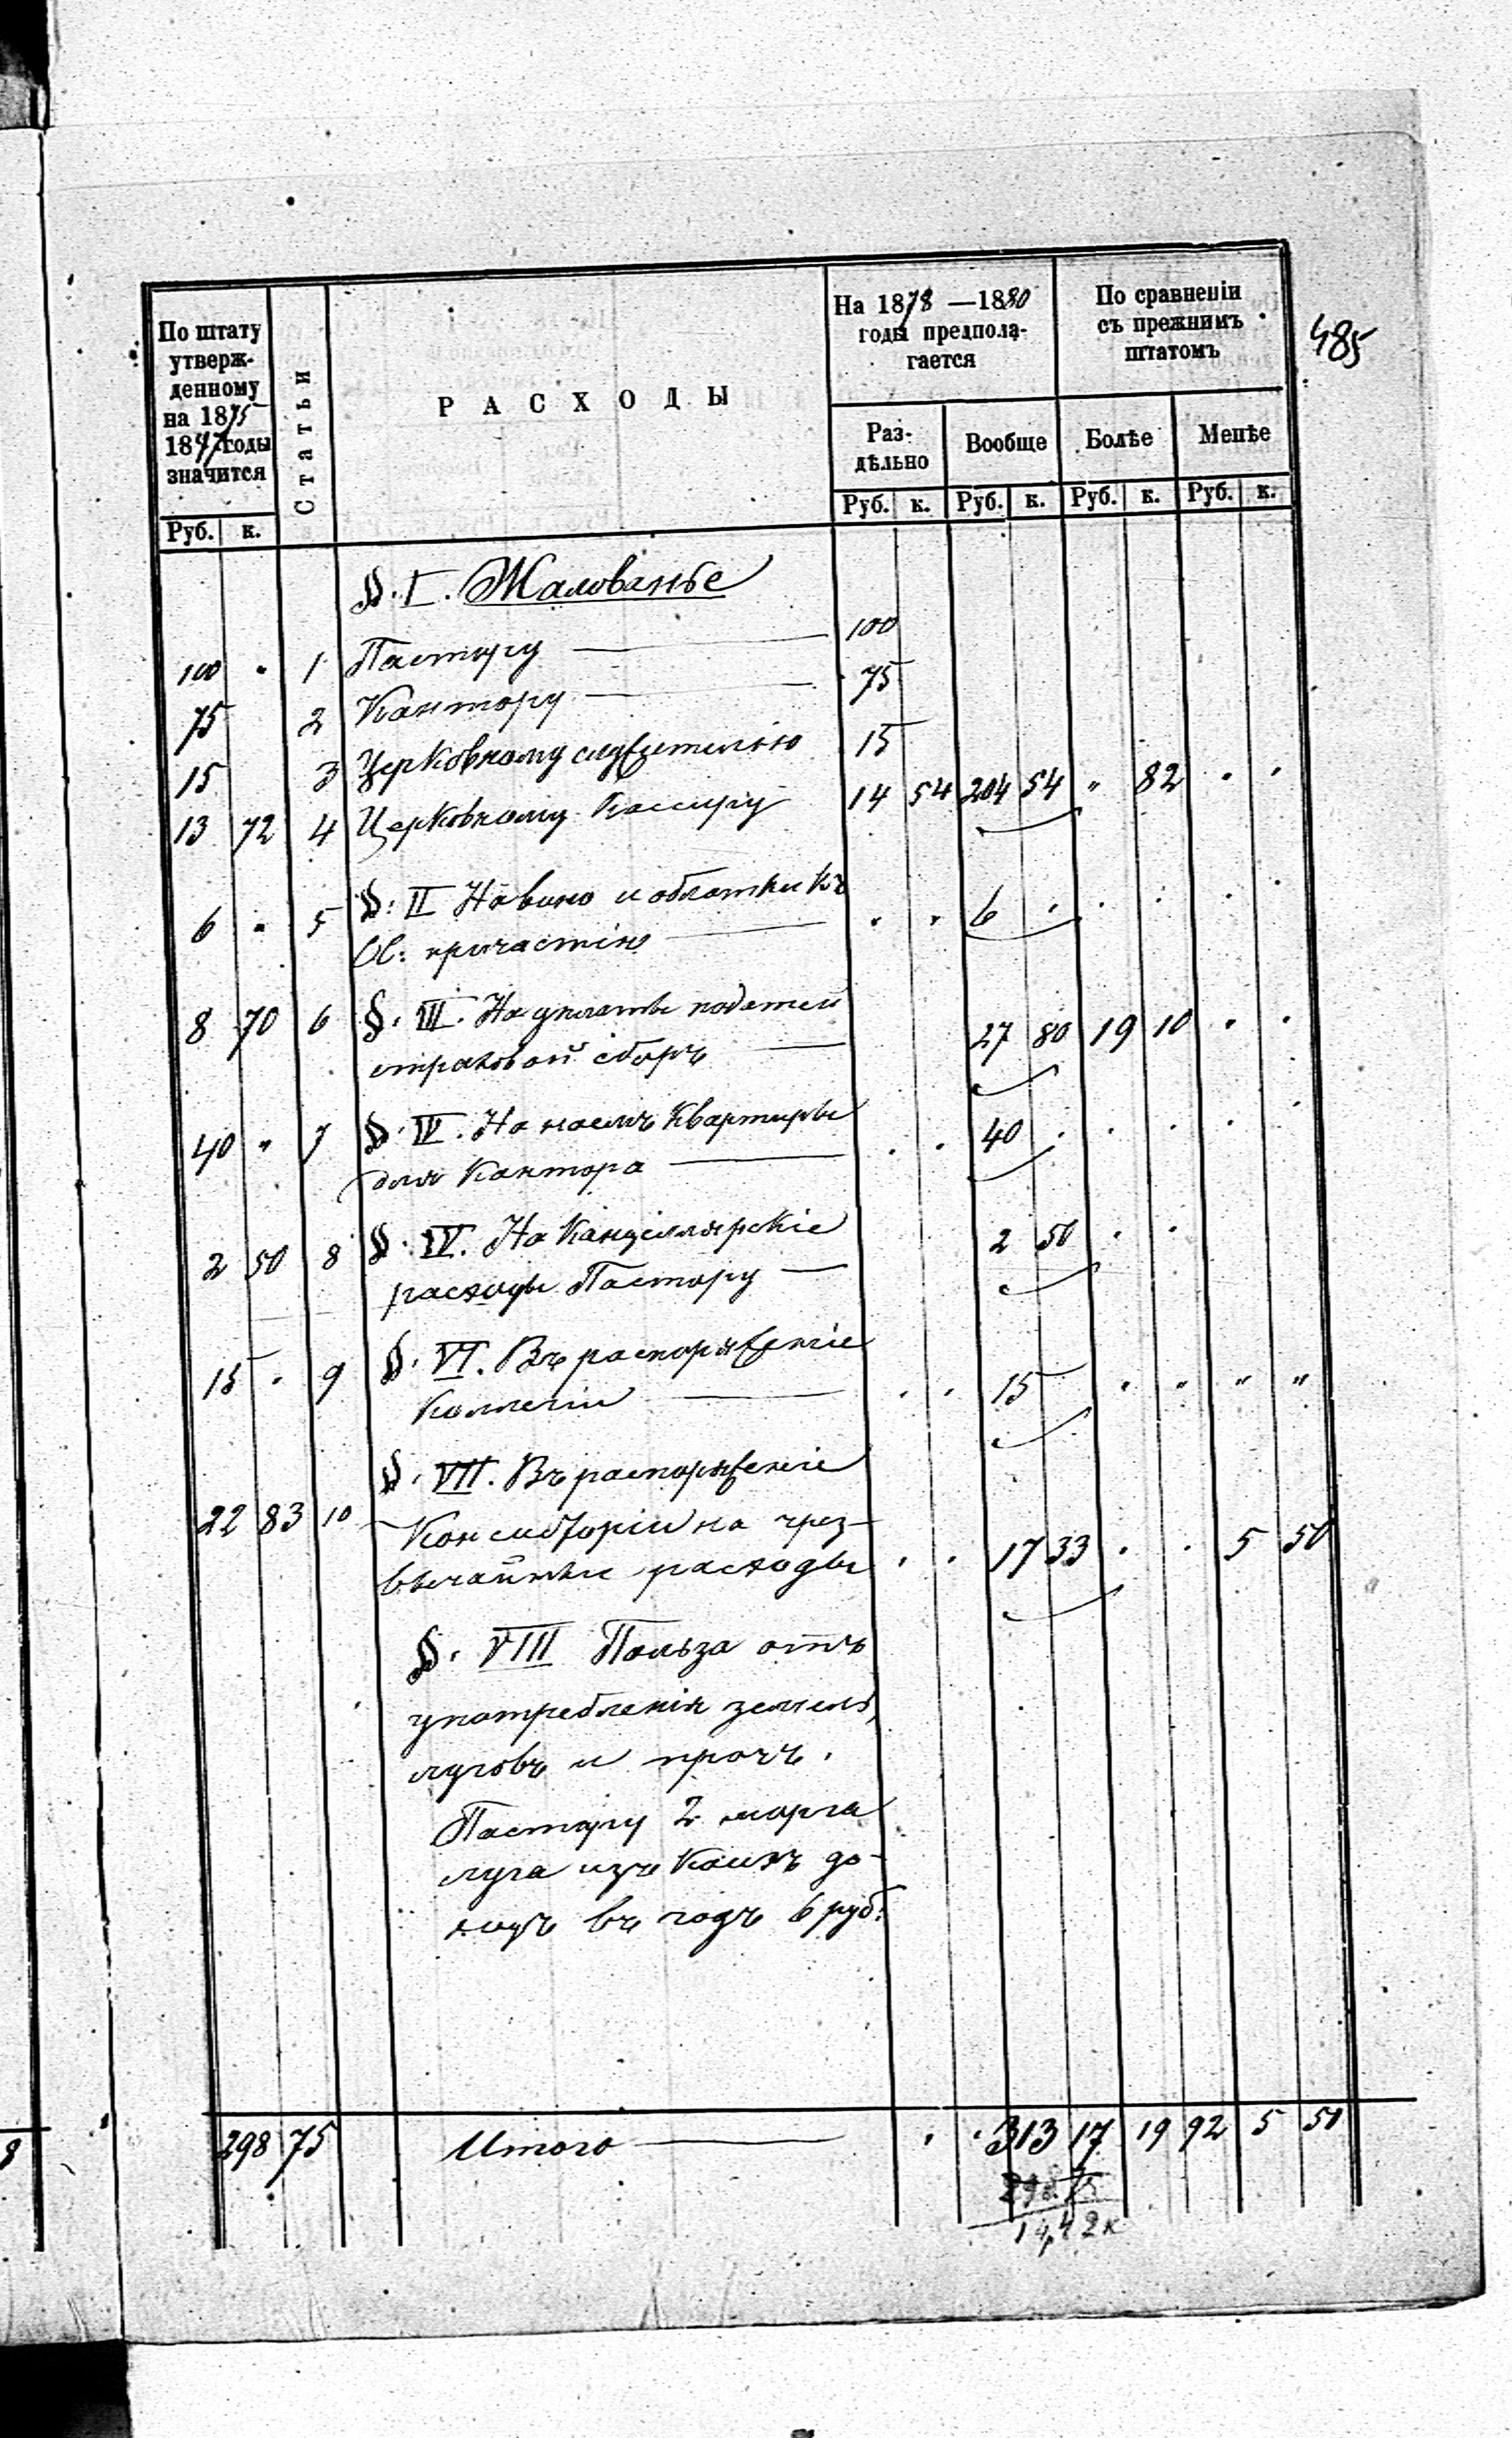 485
По штату
утверж-
денному
на 1875
1877 годы
значится
Статьи
РАСХОДЫ
На 1878 —1880
годы предпола-
гается
По сравненіи
съ прежнимъ
штатомъ
Раз-
дѣльно
Вообще
Болѣе
Менѣе
Руб. к.
Руб. к. Руб. к. Руб. к. Руб. к.
§. I. Жалованье
100 " 1 Пастору — 100
75 2 Кантору — 75
15 3 Церковному служителю 15
13 72 4 Церковному Кассиру 14 54 204 54 " 82 " "
6 " 5 §. II На вино и облатки къ " " 6 " " " " "
Св: причастію —
8 70 6 §. III. На уплаты податей 27 80 19 10 " "
страховой сборъ —
40 " 7 §. IV. На наемъ Квартиры " " 40 " " " " "
для Кантора —
2 50 8 §. IV. На Канцелярскіе 2 50 " "
расходы Пастору —
15 " 9 §. VI. Въ распоряженіе
Коллегіи — " " 15 " " " "
§. VII. Въ распоряженіе
22 83 10 Консисторіи на чрез-
вычайные расходы " " 17 33 " " 5 50
§. VIII Польза отъ
употребленія земель,
луговъ и проч.
Пастору 2 морга
луга изъ коихъ до-
ходъ въ годъ 6 руб:
298 75 Итого — " " 313 17 19 92 5 50
298.75
14,42 к
8